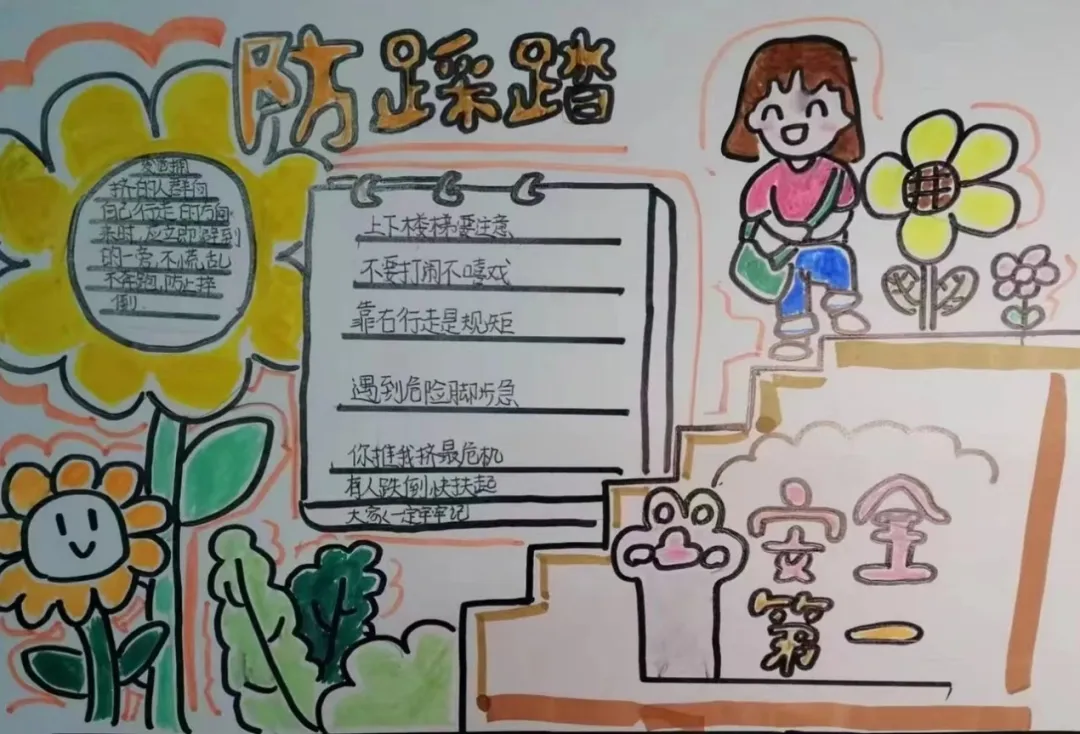 防踩踏
发觉拥
挤的人群向
自己行走的方向
来时,应立即避到
的一旁,不慌乱
不奔跑,防止摔
倒.
上下楼梯要注意
不要打闹不嘻戏
靠右行走是规矩
遇到危险脚步急
你推我挤最危机
有人跌倒快扶起
大家一定牢牢记
安全
第一